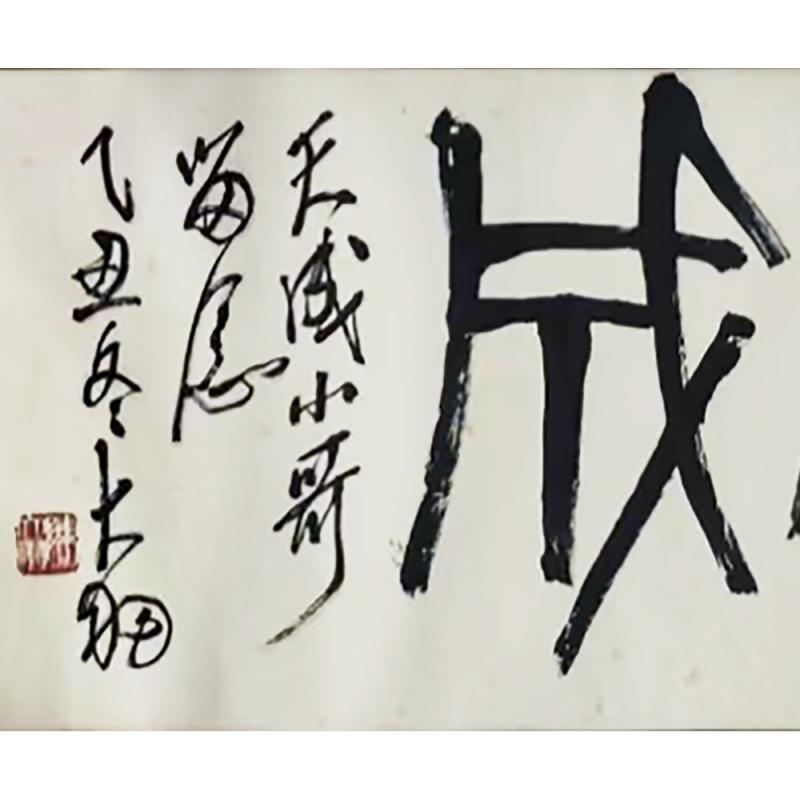 成
天成小哥
留念
乙丑冬大羽